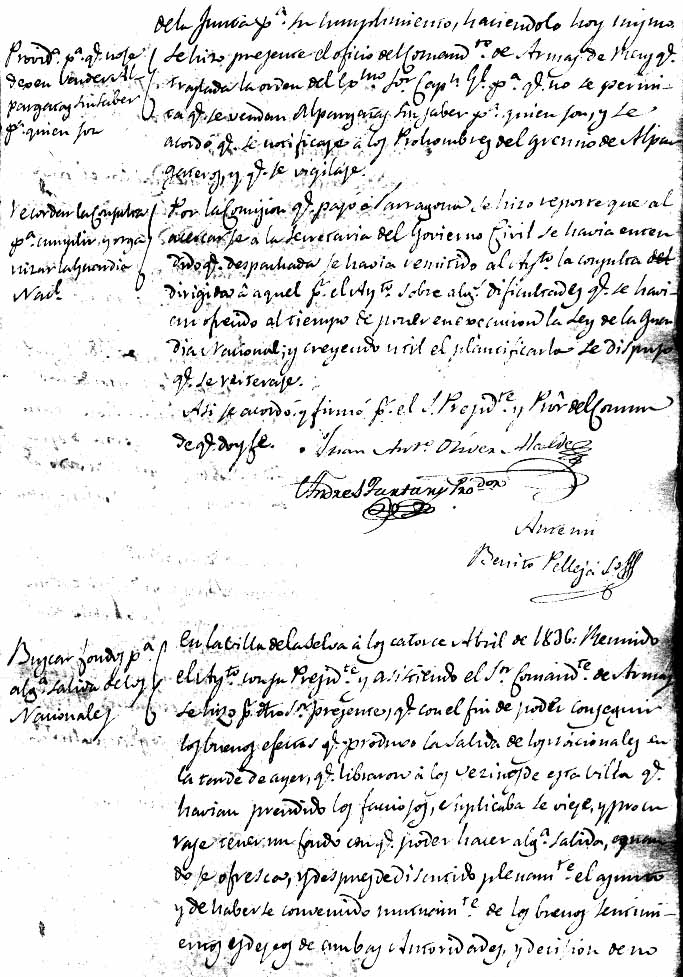 de la Junta pª. su cumplimiento, haciendolo hoy mismo.
Provid.ª pª. qe. no se
dexen vender Al
pargatas sin saber
pª. quien son
Se hizo presente el oficio del Comand.te de Armas de Reus qe.
traslada la orden del Exmo Sor Capn Gl. pª. qe. no se permi-
ta qe. se vendan Alpargatas sin saber pª. quien son, y se
acordó qe. se notificase á los Prohombres del gremio de Alpar
gateros, y qe. se vigilase.
recordar la Consulta
pª. cumplir, y orga
nizar la Guardia
Nacl.
Por la Comision qe. pasó a Tarragona se hizo reporte que al
acercarse a la Secretaria del Govierno Civil se havia enten
dido qe. despachada se havia remitido al Aytº. la consulta
dirigida á aquel pr. el Aytº. sobre algs. dificultades qe. se havi-
an ofrecido al tiempo de poner en execucion la Ley de la Guar
dia Nacional; y creyendo util el plantificarla se dispuso
qe. se reiterase.
Asi se acordó, y firmó pr. el S. Presid.te y Pror. del Comun
de qe. doy fe.
Juan Antº. Oliver Alcalde
Andres Fantany Prodor.
Ante mi
Benito Pellejá Sº.
Buscar fondos pª.
algª. salida de los
Nacionales
En la Villa de la Selva á los catorce Abril de 1836: Reunido
el Aytº. con su Presid.te y asistiendo el Sr. Comand.te de Armas
se hizo pr. dho Sor. presente, qe. con el fin de poder conseguir
los buenos efectos qe. produxo la salida de los Nacionales en
la tarde de ayer, qe. libraron á los vezinos de esta Villa qe.
havian prendido los facciosos, suplicaba se viese, y procu
rase tener un fondo con qe. poder hacer algª. salida, quan
do se ofresca, y despues de discutido plenam.te el asunto
y de haberse convenido mutuam.te de los buenos sentimi-
entos y deseos de ambas Autoridades, y decision de no